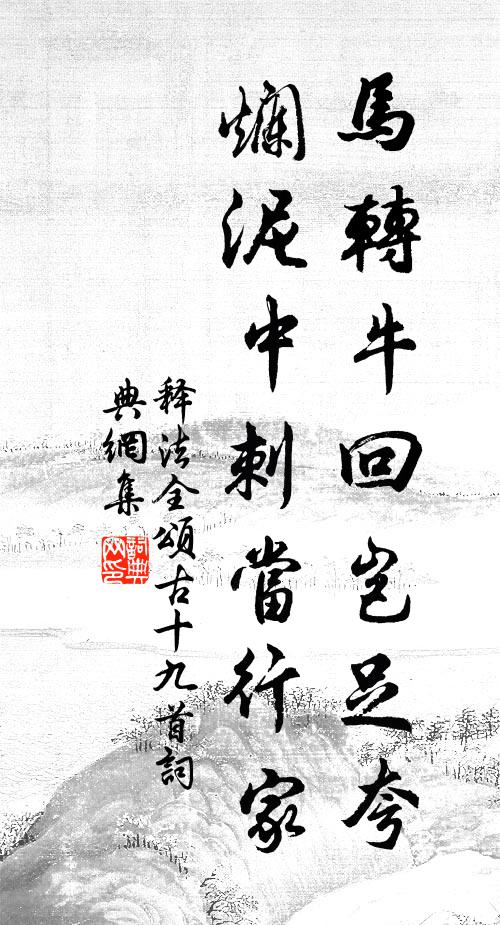 馬轉牛回豈足夸
爛泥中刺當行家
释法全頌古十九首詞
典網集
詞典網印